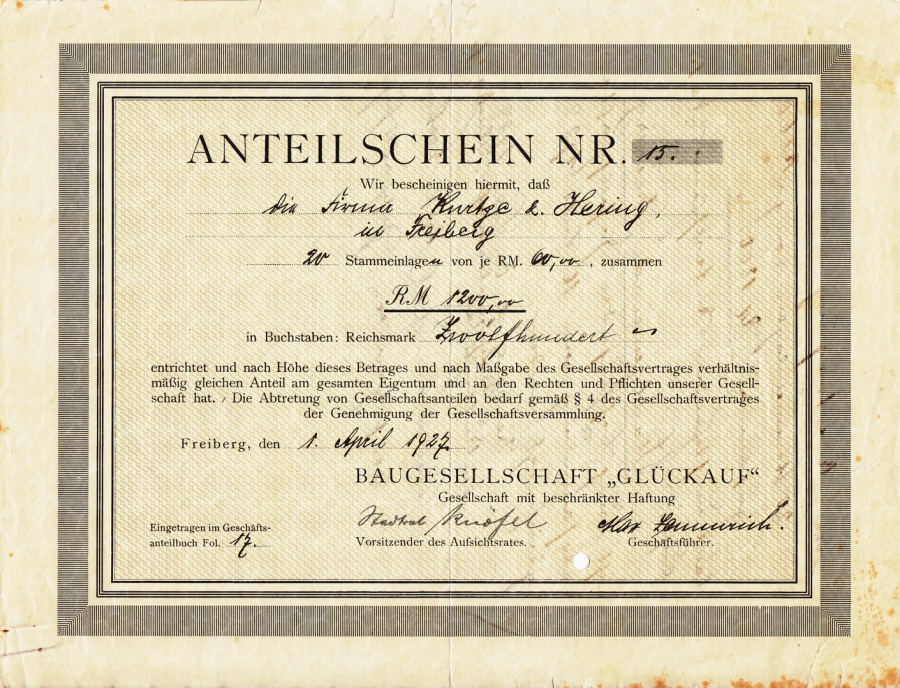 ANTEILSCHEIN NR. 15.
Wir bescheinigen hiermit, daß
die Firma Kurtze & Hering,
in Freiberg
20 Stammeinlagen von je RM. 60,00, zusammen
RM 1200,00
in Buchstaben: Reichsmark Zwölfhundert
entrichtet und nach Höhe dieses Betrages und nach Maßgabe des Gesellschaftsvertrages verhältnis-
mäßig gleichen Anteil am gesamten Eigentum und an den Rechten und Pflichten unserer Gesell-
schaft hat. / Die Abtretung von Gesellschaftsanteilen bedarf gemäß § 4 des Gesellschaftsvertrages
der Genehmigung der Gesellschaftsversammlung.
Freiberg, den 1. April 1927.
BAUGESELLSCHAFT „GLÜCKAUF“
Gesellschaft mit beschränkter Haftung
Stadtrat Knöfel Max
Eingetragen im Geschäfts-
anteilbuch Fol. 17.
Vorsitzender des Aufsichtsrates. Geschäftsführer.